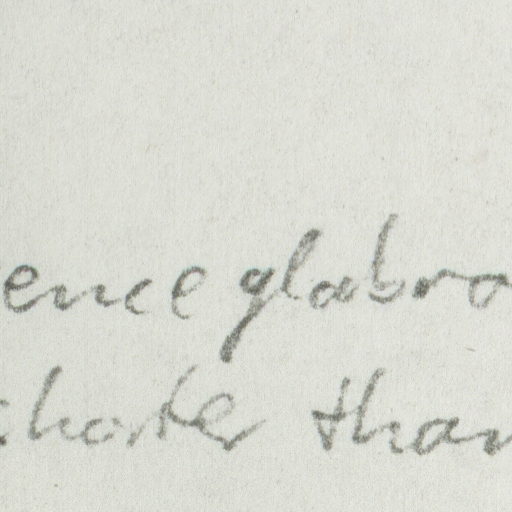 ence glabro
shorter than